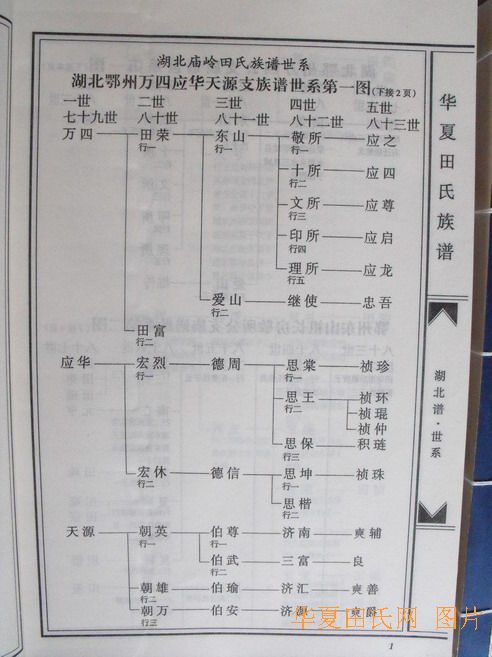 湖北庙岭田氏族谱世系
湖北鄂州万四应华天源支族谱世系第一图(下接2页)
一世 二世 三世 四世 五世
七十九世 八十世 八十一世 八十二世 八十三世
万四 田荣 东山 敬所 应之
行一 行一 行一
十所 应四
行二
文所 应尊
行三
印所 应启
行四
理所 应龙
行五
爱山 继使 忠吾
行二
田富
行二
应华 宏烈 德周 思棠 祯珍
行一 行一
思王 祯环
行二 祯琨
祯仲
思保 积琏
行三
宏休 德信 思坤 祯珠
行二 行一
思楷
行二
天源 朝英 伯尊 济南 奭辅
行一 行一
伯武 三富 良
行二
朝雄 伯瑜 济汇 奭善
行二
朝万 伯安 济源 奭爵
行三
华夏田氏族谱
湖北谱·世系
华夏田氏网 图片
1